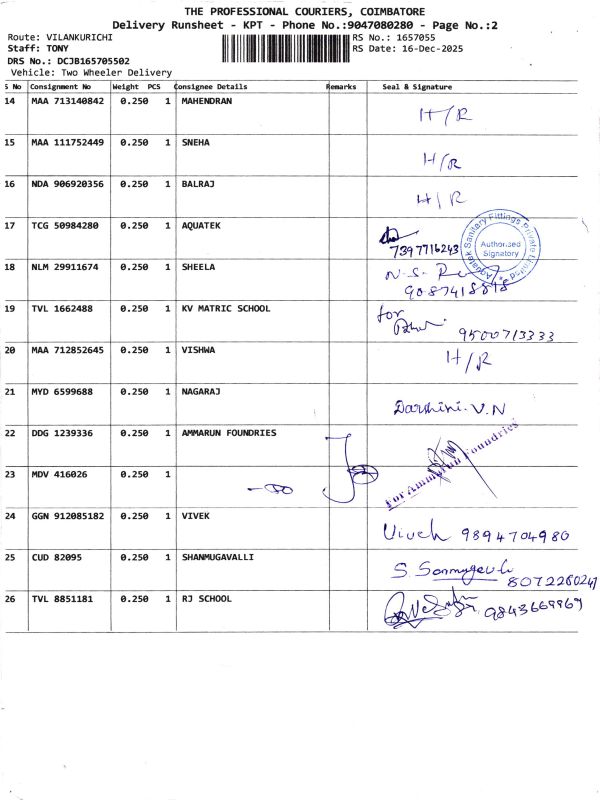 THE PROFESSIONAL COURIERS, COIMBATORE
Delivery Runsheet - KPT - Phone No.:9047080280 - Page No.:2
Route: VILANKURICHI RS No.: 1657055
Staff: TONY RS Date: 16-Dec-2025
DRS No.: DCJB165705502
Vehicle: Two Wheeler Delivery
S No Consignment No Weight PCS Consignee Details Remarks Seal & Signature
14 MAA 713140842 0.250 1 MAHENDRAN H/R
15 MAA 111752449 0.250 1 SNEHA H/R
16 NDA 906920356 0.250 1 BALRAJ H/R
17 TCG 50984280 0.250 1 AQUATEK 7397716243
Aquatek Sanitary Fittings Private Limited
Authorised
Signatory
18 NLM 29911674 0.250 1 SHEELA N.S.
9087418818
19 TVL 1662488 0.250 1 KV MATRIC SCHOOL for
9500713333
20 MAA 712852645 0.250 1 VISHWA H/R
21 MYD 6599688 0.250 1 NAGARAJ Darshini.V.N
22 DDG 1239336 0.250 1 AMMARUN FOUNDRIES
For Ammarun Foundries
23 MDV 416026 0.250 1
24 GGN 912085182 0.250 1 VIVEK Vivek 9894704980
25 CUD 82095 0.250 1 SHANMUGAVALLI S.
8072280247
26 TVL 8851181 0.250 1 RJ SCHOOL 9843669969